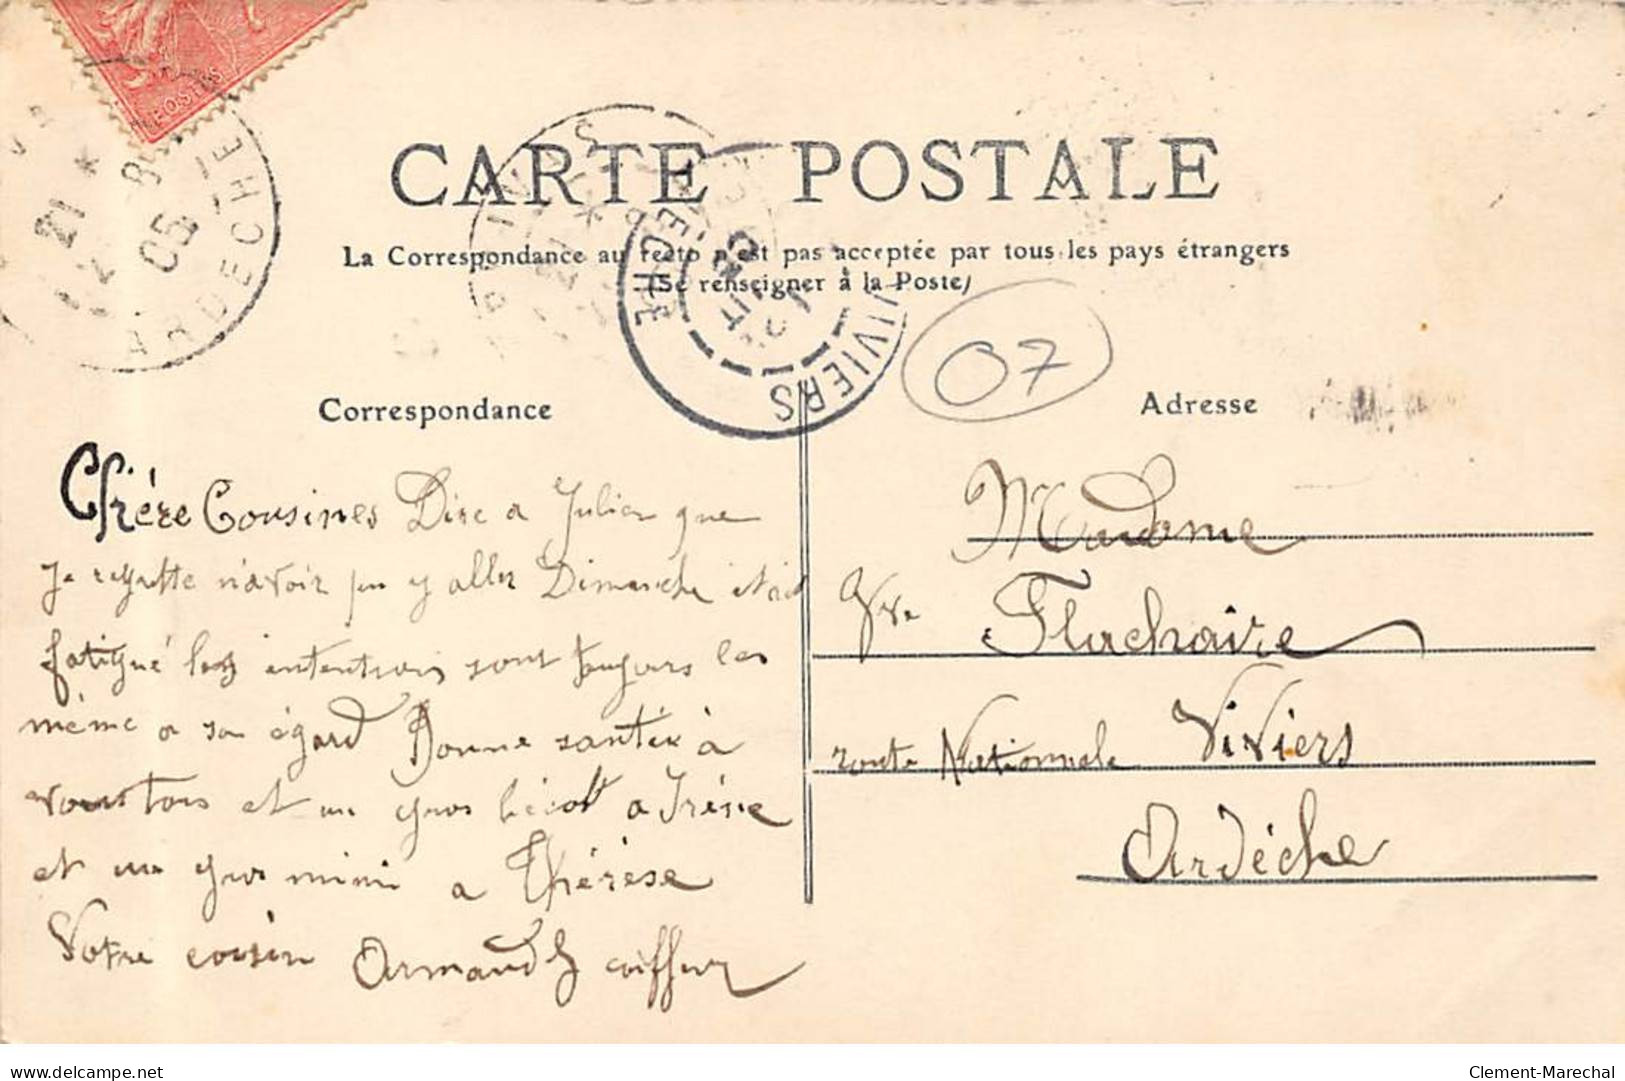 POSTES
21 * 8
05
ARDECHE
CARTE POSTALE
La Correspondance au recto n'est pas acceptée par tous les pays étrangers
(Se renseigner à la Poste)
VIVIERS
07
Correspondance
Adresse
Chère Cousines Dire a Julien que
je regrette n'avoir pu y aller Dimanche étais
fatigué les intentions sont toujours les
même a son égard Bonne santée à
vous tous et un gros bécot a Irène
et un gros mimi a Thérèse
Votre cousin Armand coiffeur
Madame
Vve Flachaire
route Nationale ViViers
Ardéche
delcampe.net
Clement-Marechal